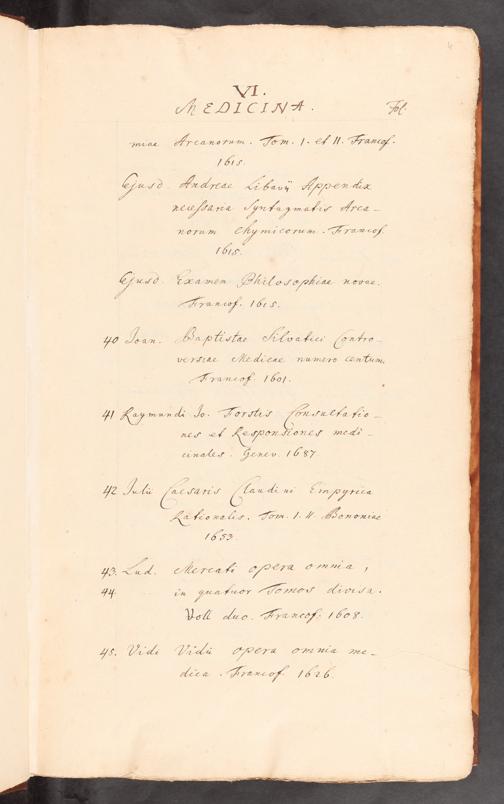 VI.
MEDICINA. Fol.
miae Arcanorum. Tom. I. et II. Francof.
1615.
Ejusd. Andreae Libavii Appendix
necessaria Syntagmatis Arca-
norum Chymicorum. Francof.
1615.
Ejusd. Examen Philosophiae novae.
Francof. 1615.
40 Joan. Baptistae Silvatici Contro-
versiae Medicae numero centum.
Francof. 1601.
41 Raymundi Jo. Fortis Consultatio-
nes et Responsiones medi-
cinales. Genev. 1687
42 Julii Caesaris Claudini Empyrica
Rationalis. Tom. I. II. Bononiae
1653.
43. Lud. Mercati opera omnia,
44. in quatuor Tomos divisa.
Voll duo. Francof. 1608.
45. Vidi Vidii opera omnia me-
dica. Francof. 1626.